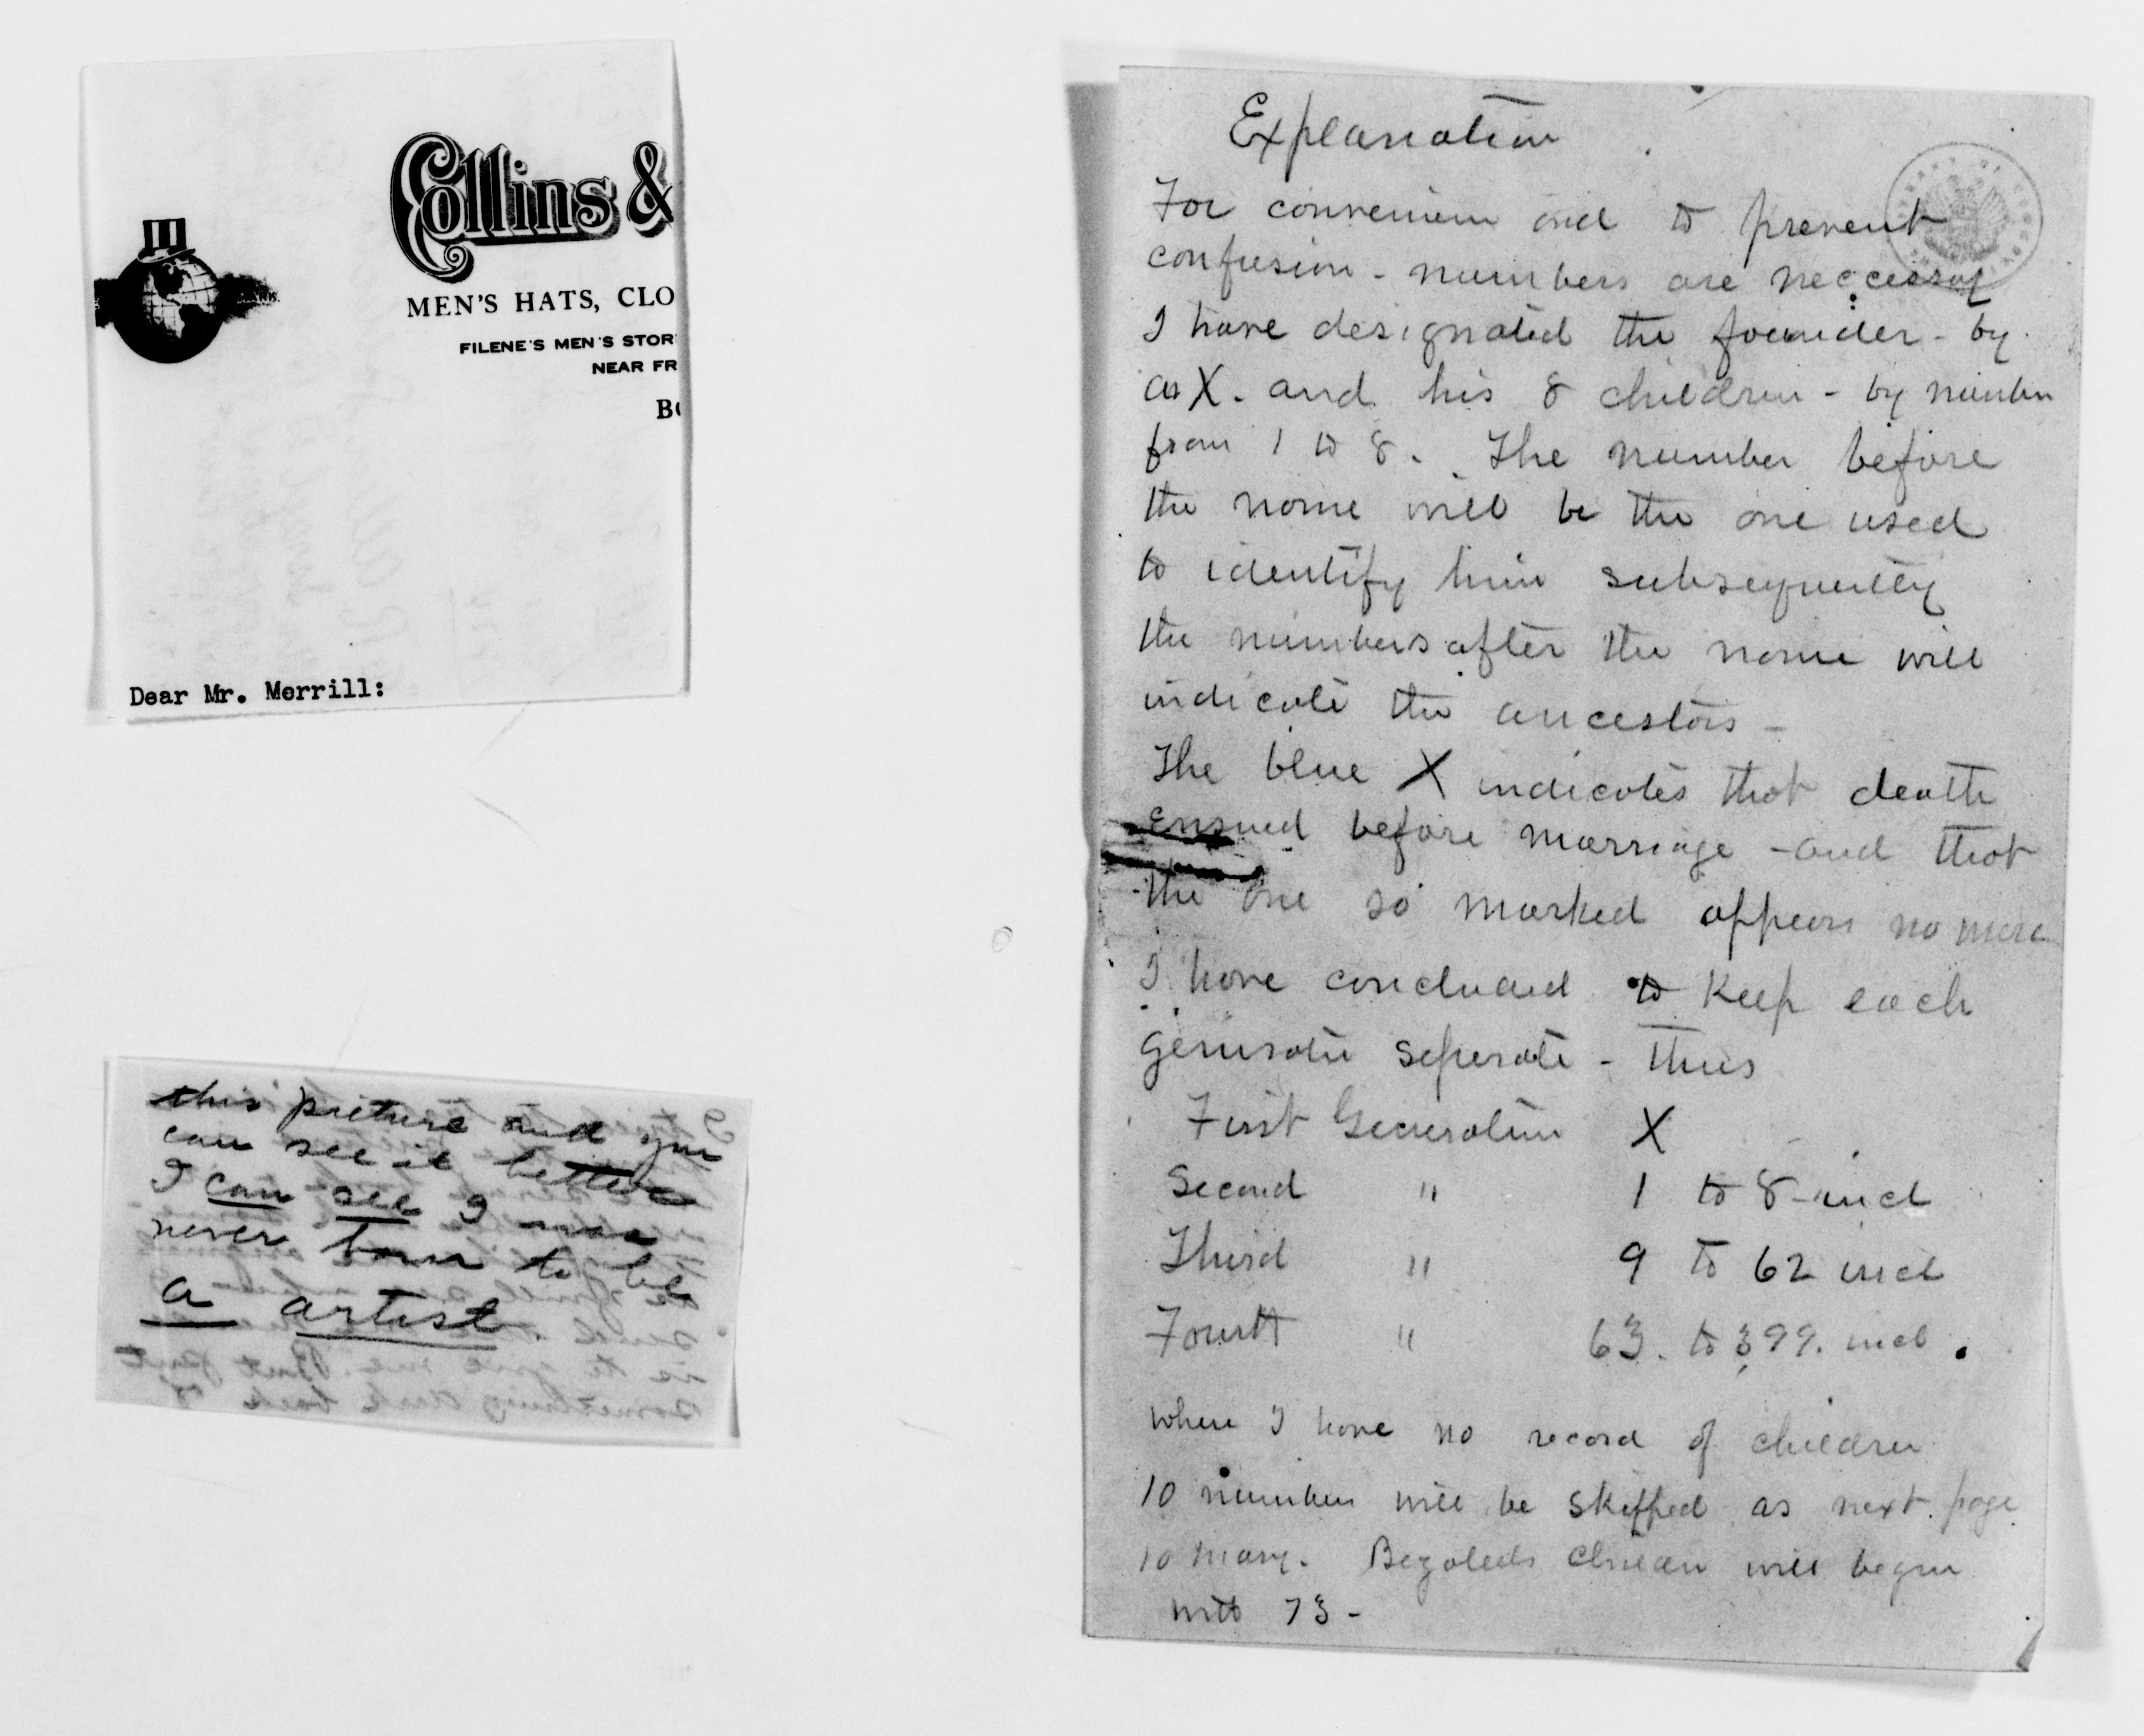 Collins &
MEN'S HATS, CLO
FILENE'S MEN'S STOR
NEAR FR
BO
Dear Mr. Merrill:
this picture and you
can see it better
I can see I was
never born to be
a artist.
Explanation
For convenience and to prevent
confusion - numbers are neccessay
I have designated the founder - by
as X. and his 8 children - by number
from 1 to 8. The number before
the name will be the one used
to identify him subsequently
the numbers after the name will
indicate the ancestors -
The blue X indicates that death
ensued before marriage - and that
the one so marked appears no more
I have concluded to keep each
generation seperate - thus
First Generation X
Second " 1 to 8 - incl
Third " 9 to 62 incl
Fourth " 63. to 399. incl.
where I have no record of children
10 numbers will be skipped as next page
10 Mary. children will begin
with 73 -